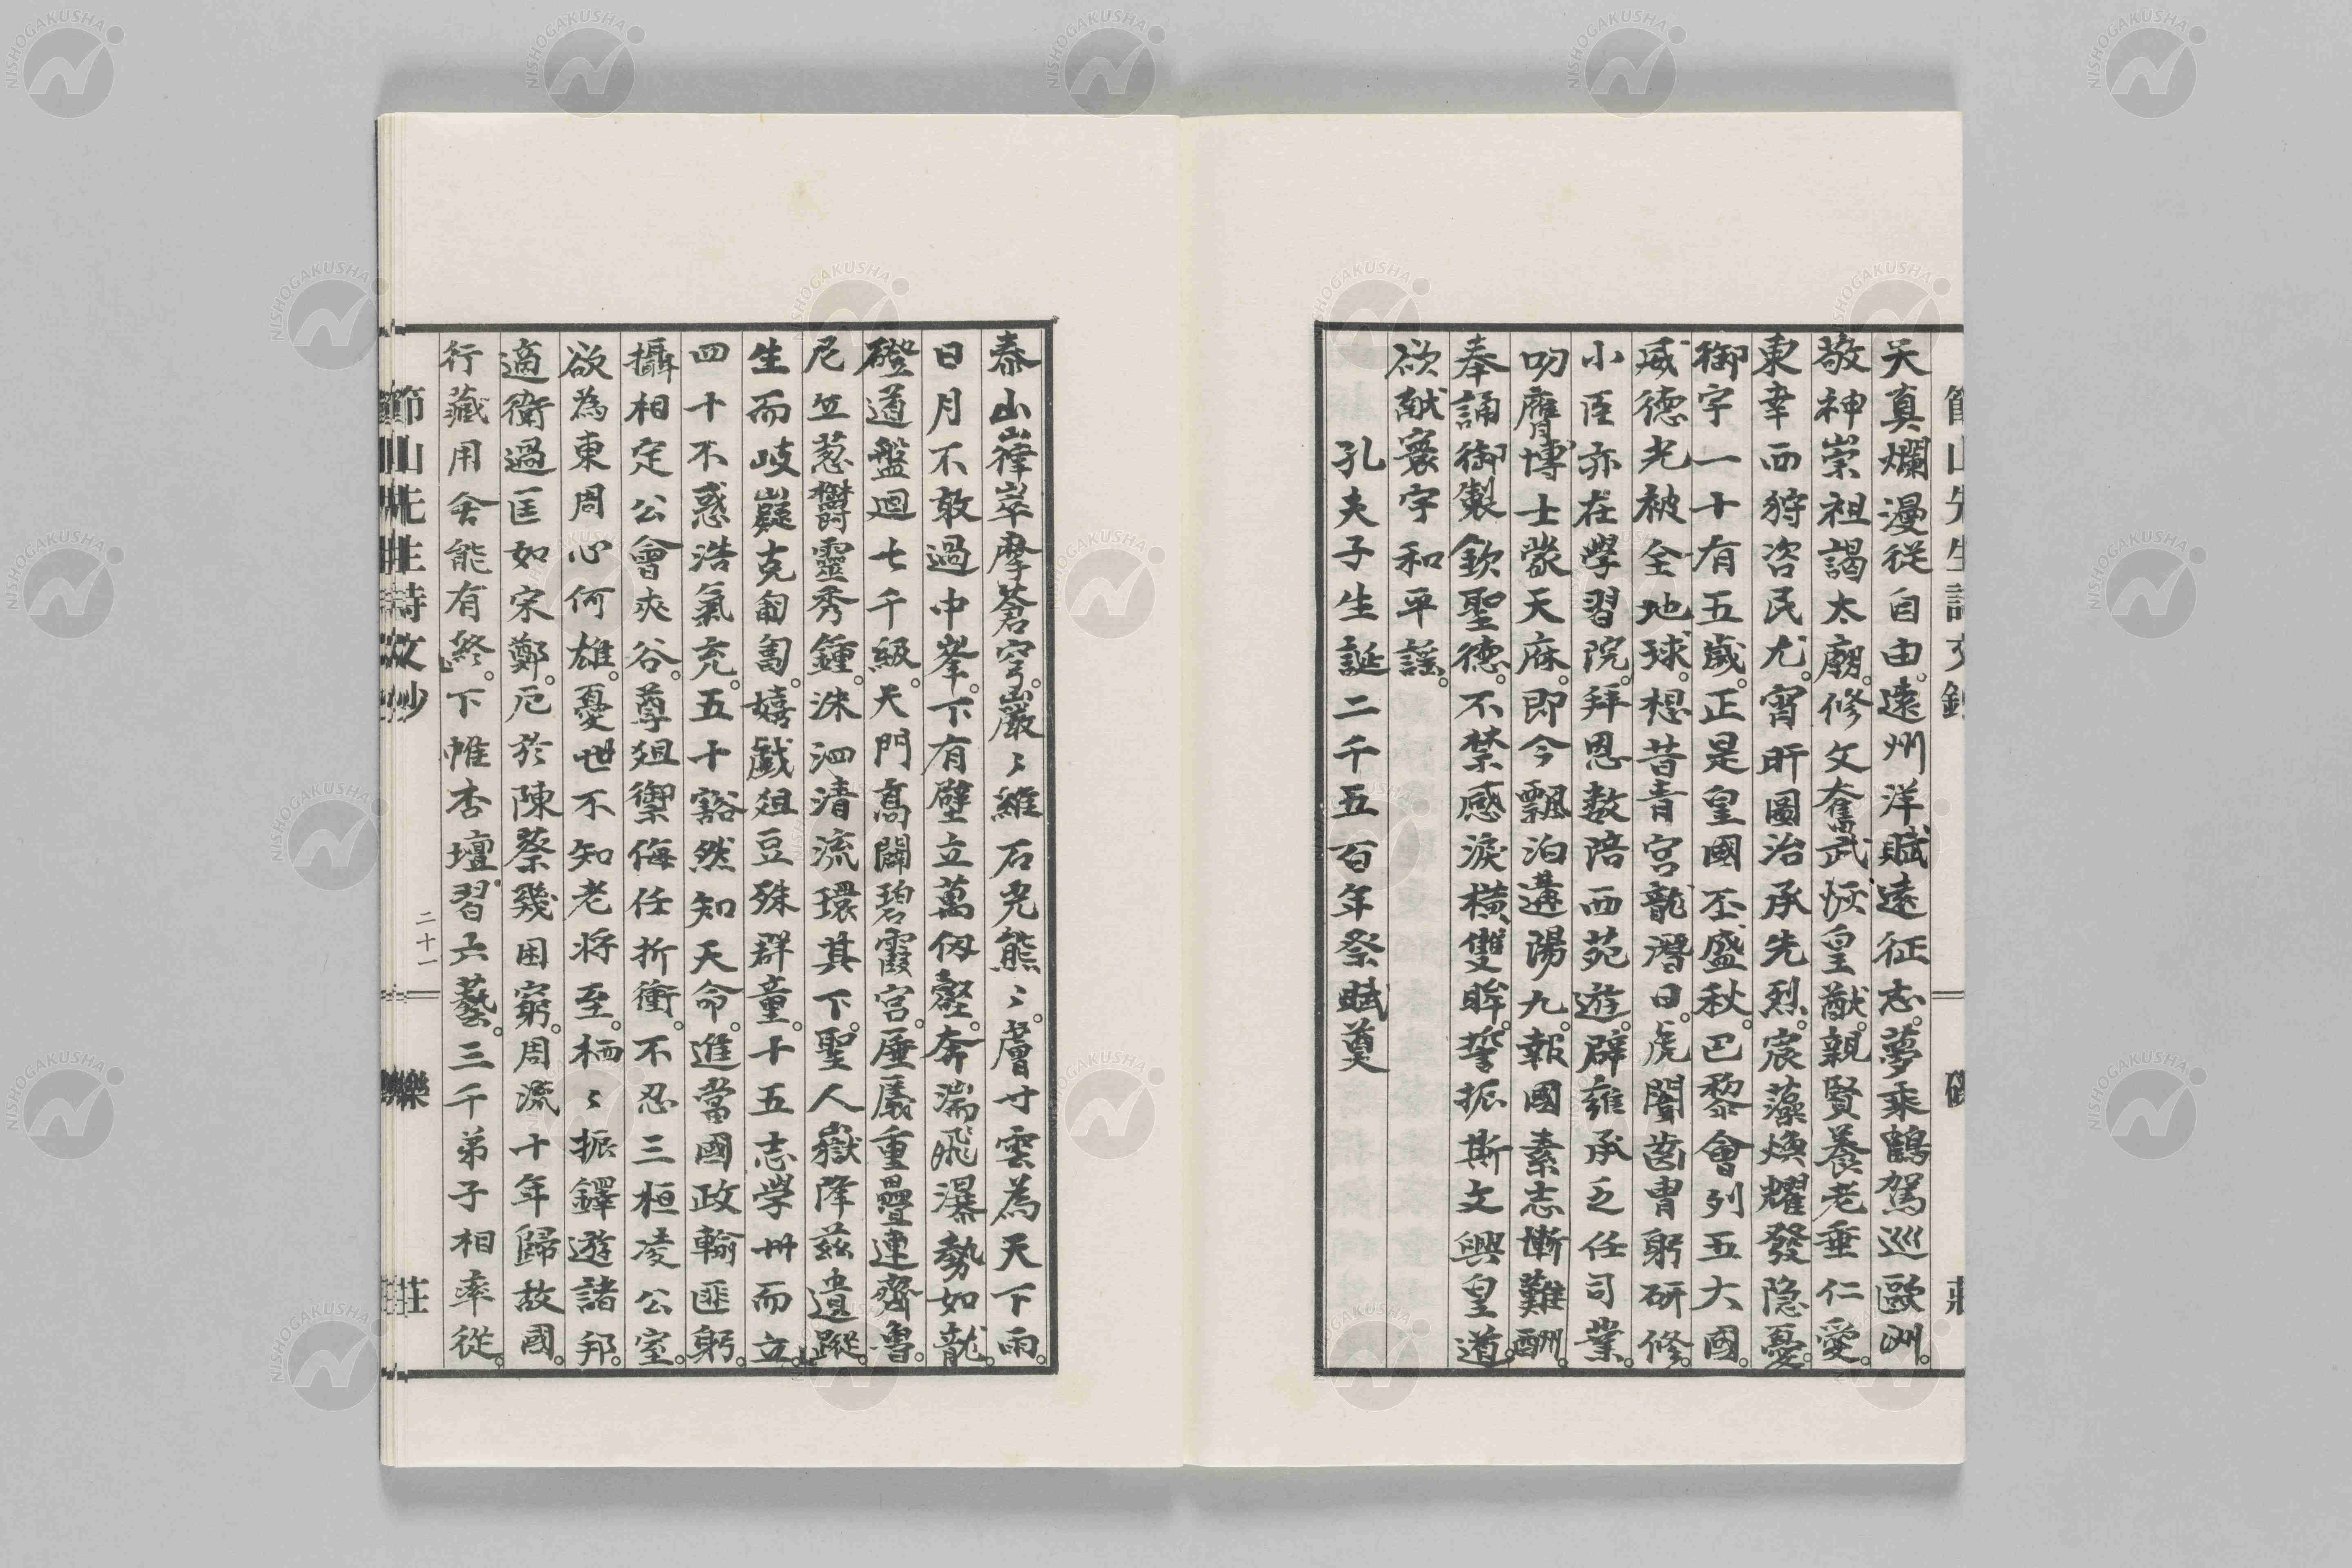 天真爛漫從自由。遠州洋賦遠征志。夢乘鶴駕巡歐洲。
敬神崇祖謁太廟。修文奮武恢皇猷。親賢養老垂仁愛。
東幸西狩咨民尤。宵旰圖治承先烈。宸藻煥耀發隐憂。
御宇一十有五歳。正是皇國丕盛秋。巴黎會列五大國。
威德光被全地球。想昔青宮龍潛日。虎闈齒胄躬研修。
小臣亦在學習院。拜恩數陪西苑遊。辟雍承乏任司業。
叨膺博士蒙天庥。即今飄泊遘陽九。報國素志慚難酬。
奉誦御製欽聖德。不禁感淚横雙眸。誓振斯文興皇道。
欲献寰宇和平謡。
孔夫子生誕二千五百年祭賦奠
泰山嵂崒摩蒼穹。巖〻維石堯熊〻。膚寸雲為天下雨。
日月不敢過中峯。下有壁立萬仭壑。奔湍飛瀑勢如龍。
磴道盤迴七千級。天門高闢碧霞宮。厜㕒重疊連齊魯。
尼丘葱欝靈秀鍾。洙泗清流環其下。聖人嶽降茲遺蹤。
生而岐嶷克匍匐。嬉戯俎豆殊群童。十五志學卅而立。
四十不惑浩氣充。五十豁然知天命。進當國政輸匪躬。
攝相定公會夾谷。尊俎禦侮任折衝。不忍三桓凌公室。
欲為東周心何雄。憂世不知老将至。栖〻振鐸遊諸邦。
適衛過匡如宋鄭。厄於陳蔡幾困窮。周流十年歸故國。
行藏用舍能有終。下帷杏壇習六藝。三千弟子相率從。
節山先生詩文鈔
二十一
樂
莊